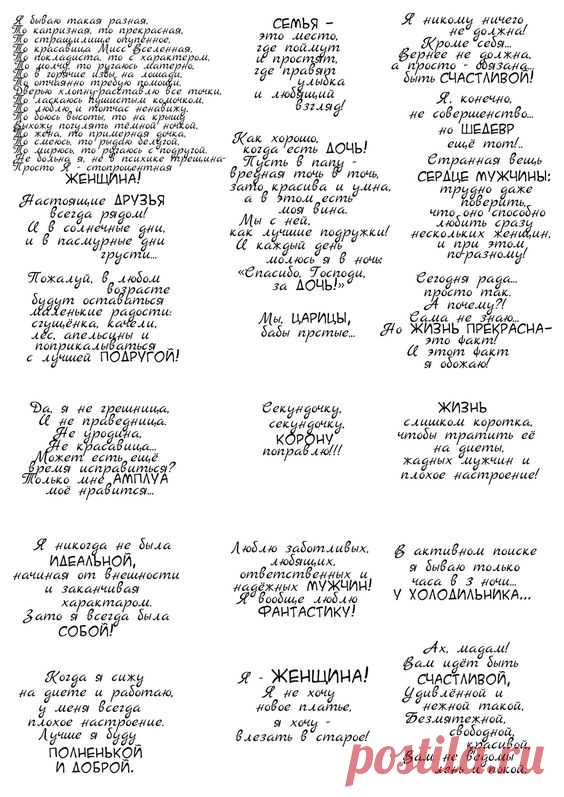 Я бываю такая разная,
То капризная, то прекрасная,
То страшилище опупенное,
То красавица Мисс Вселенная,
То покладиста, то с характером,
То молчу, то ругаюсь матерно,
То в горячие избы, на лошади,
То отчаянно требую помощи,
Дверью хлопну, расставлю все точки,
То ласкаюсь пушистым комочком,
То люблю и тотчас ненавижу,
То боюсь высоты, то на крышу
Выхожу погулять тёмной ночкой,
То жена, то примерная дочка,
То смеюсь, то рыдаю белугой,
То мирюсь, то ругаюсь с подругой.
Не больна я, не в психике трещина-
Просто Я - стопроцентная
ЖЕНЩИНА!
Настоящие ДРУЗЬЯ
всегда рядом!
И в солнечные дни,
и в пасмурные дни
грусти...
Пожалуй, в любом
возрасте
будут оставаться
маленькие радости:
сгущёнка, качели,
лес, апельсины и
поприкалываться
с лучшей ПОДРУГОЙ!
Да, я не грешница,
И не праведница.
Не уродина,
Не красавица...
Может есть ещё
время исправиться?
Только мне АМПЛУА
моё нравится...
Я никогда не была
ИДЕАЛЬНОЙ,
начиная от внешности
и заканчивая
характаром.
Зато я всегда была
СОБОЙ!
Когда я сижу
на диете и работаю,
у меня всегда
плохое настроение.
Лучше я буду
ПОЛНЕНЬКОЙ
И ДОБРОЙ.
СЕМЬЯ -
это место,
где поймут
и простят,
где правят
улыбка
и любящий
взгляд!
Как хорошо,
когда есть ДОЧЬ!
Пусть в папу -
вредная точь в точь,
зато красива и умна,
а в этом есть
моя вина.
Мы с ней,
как лучшие подружки!
И каждый день
молюсь я в ночь:
«Спасибо, Господи,
за ДОЧЬ!»
Мы, ЦАРИЦЫ,
бабы прстые...
Секундочку,
секундочку,
КОРОНУ
поправлю!!!
Люблю заботливых,
любящих,
ответственных и
надёжных МУЖЧИН!
Я вообще люблю
ФАНТАСТИКУ!
Я - ЖЕНЩИНА!
Я не хочу
новое платье,
я хочу -
влезать в старое!
Я никому ничего
не должна!
Кроме себя...
Вернее не должна,
а просто - обязана...
быть СЧАСТЛИВОЙ!
Я, конечно,
не совершенство...
но ШЕДЕВР
ещё тот!..
Странная вещь
СЕРДЦЕ МУЖЧИНЫ:
трудно даже
поверить,
что оно способно
любить сразу
нескольких женщин,
и при этом,
по-разному!
Сегодня рада...
просто так.
А почему?!
Сама не знаю...
Но ЖИЗНЬ ПРЕКРАСНА-
это факт!
И этот факт
я обожаю!
ЖИЗНЬ
слишком коротка,
чтобы тратить её
на диеты,
жадных мужчин и
плохое настроение!
В активном поиске
я бываю только
часа в 3 ночи...
У ХОЛОДИЛЬНИКА...
Ах, мадам!
Вам идёт быть
СЧАСТЛИВОЙ,
Удивлённой и
нежной такой,
Безмятежной,
свободной,
красивой,
Вам не ведомы
лень и покой.
postila.ru